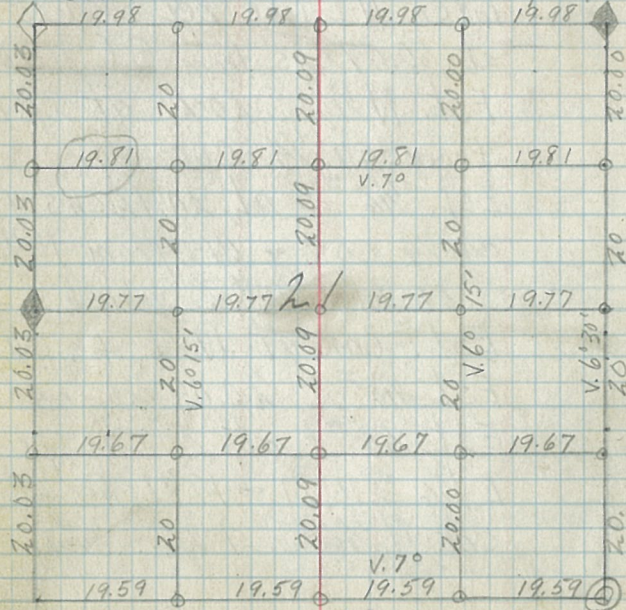 19.98 19.98 19.98 19.98
20.03 20 20.09 20.00 20.00
19.81 19.81 19.81 19.81
V.7°
20.03 20 20.09 20 20
19.77 19.77 21 19.77 19.77
20.03 20 V.6°15' 20.09 20 V.6° 15' V.6°30' 20
19.67 19.67 19.67 19.67
20.03 20 20.09 20.00 20.
V.7°
19.59 19.59 19.59 19.59